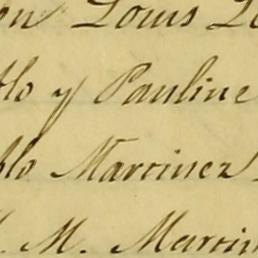 on Louis
blo y Pauline
blo Martinez
M. Martin